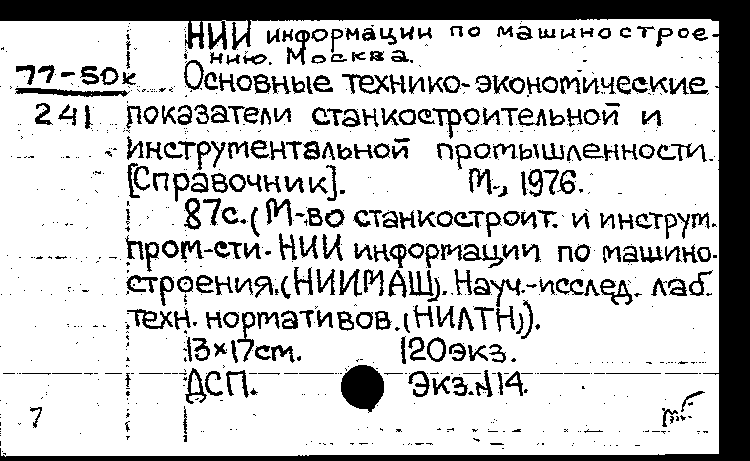 НИИ информации по машинострое-
нию. Москва.
77-50к
241
Основные технико-экономические
показатели станкостроительной и
инструментальной промышленности.
[Справочник]. М., 1976.
87с. (М-во станкостроит. и инструм.
пром-сти. НИИ информации по машино-
строения. (НИИМАШ). Науч.-исслед. лаб.
техн. нормативов. (НИЛТН)).
13×17см. 120экз.
ДСП. Экз.№14.
7